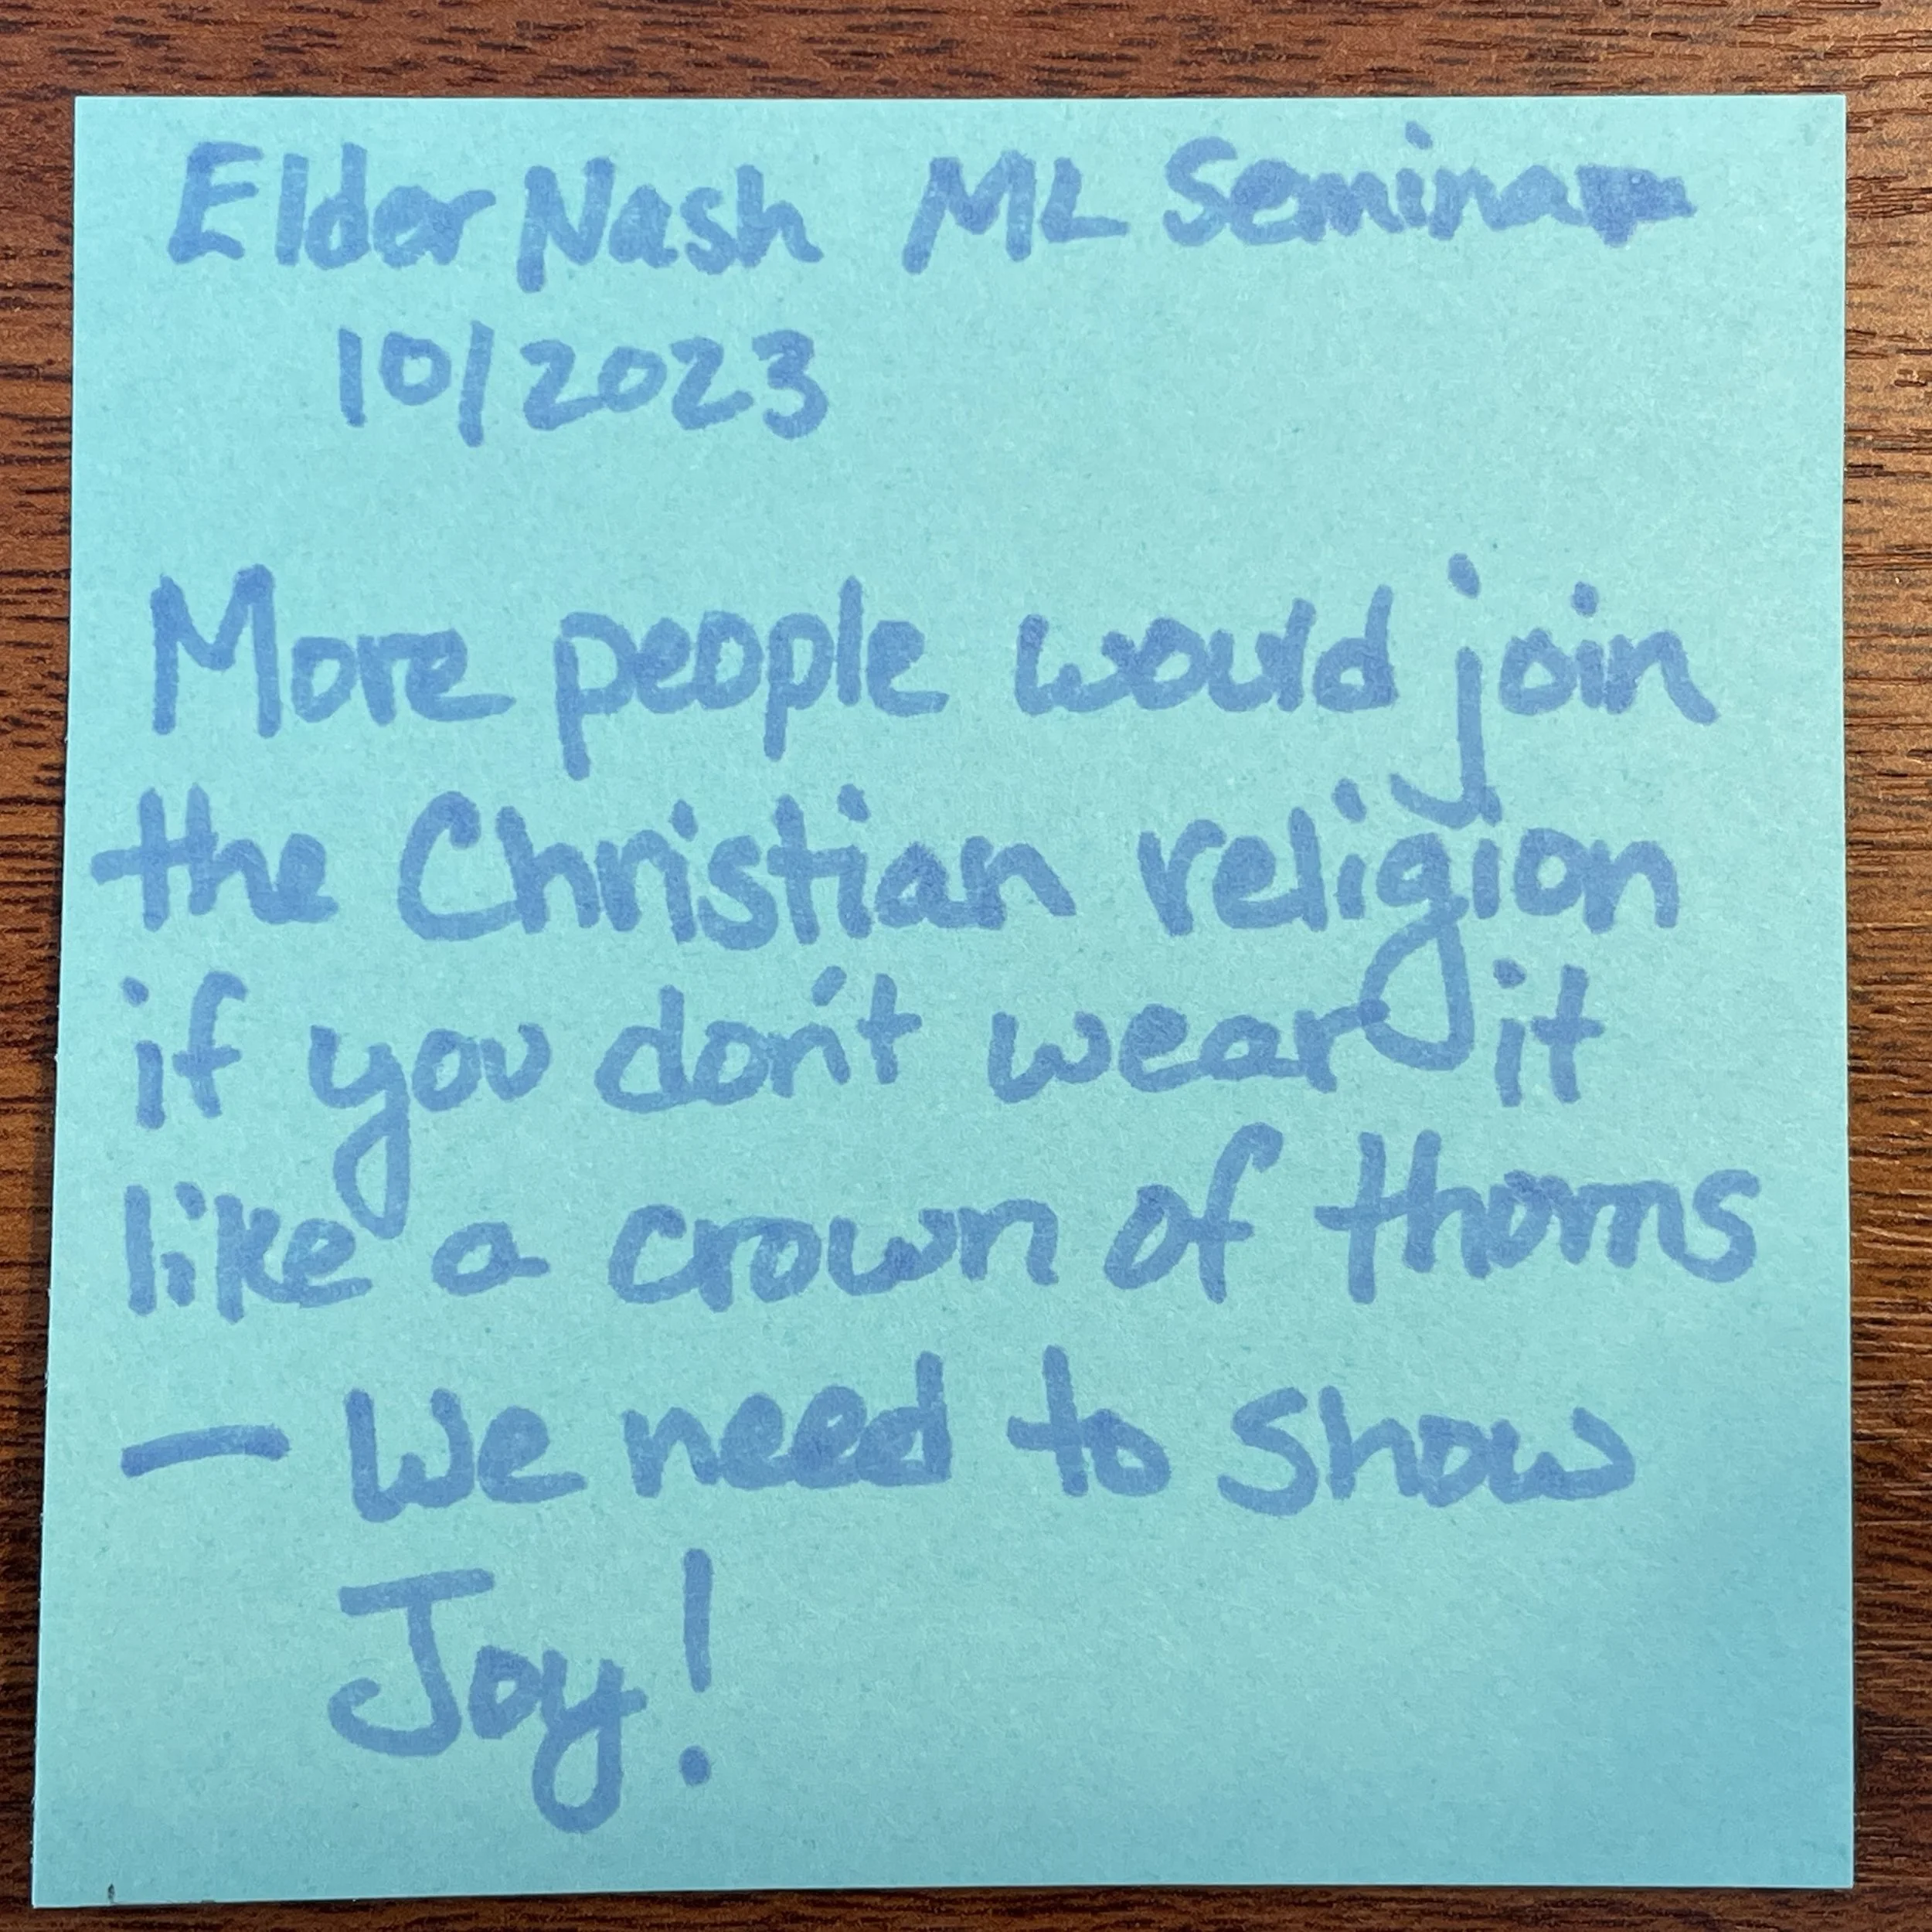 Elder Nash ML Seminar
10/2023
More people would join
the Christian religion
if you don't wear it
like a crown of thorns
— We need to show
Joy!